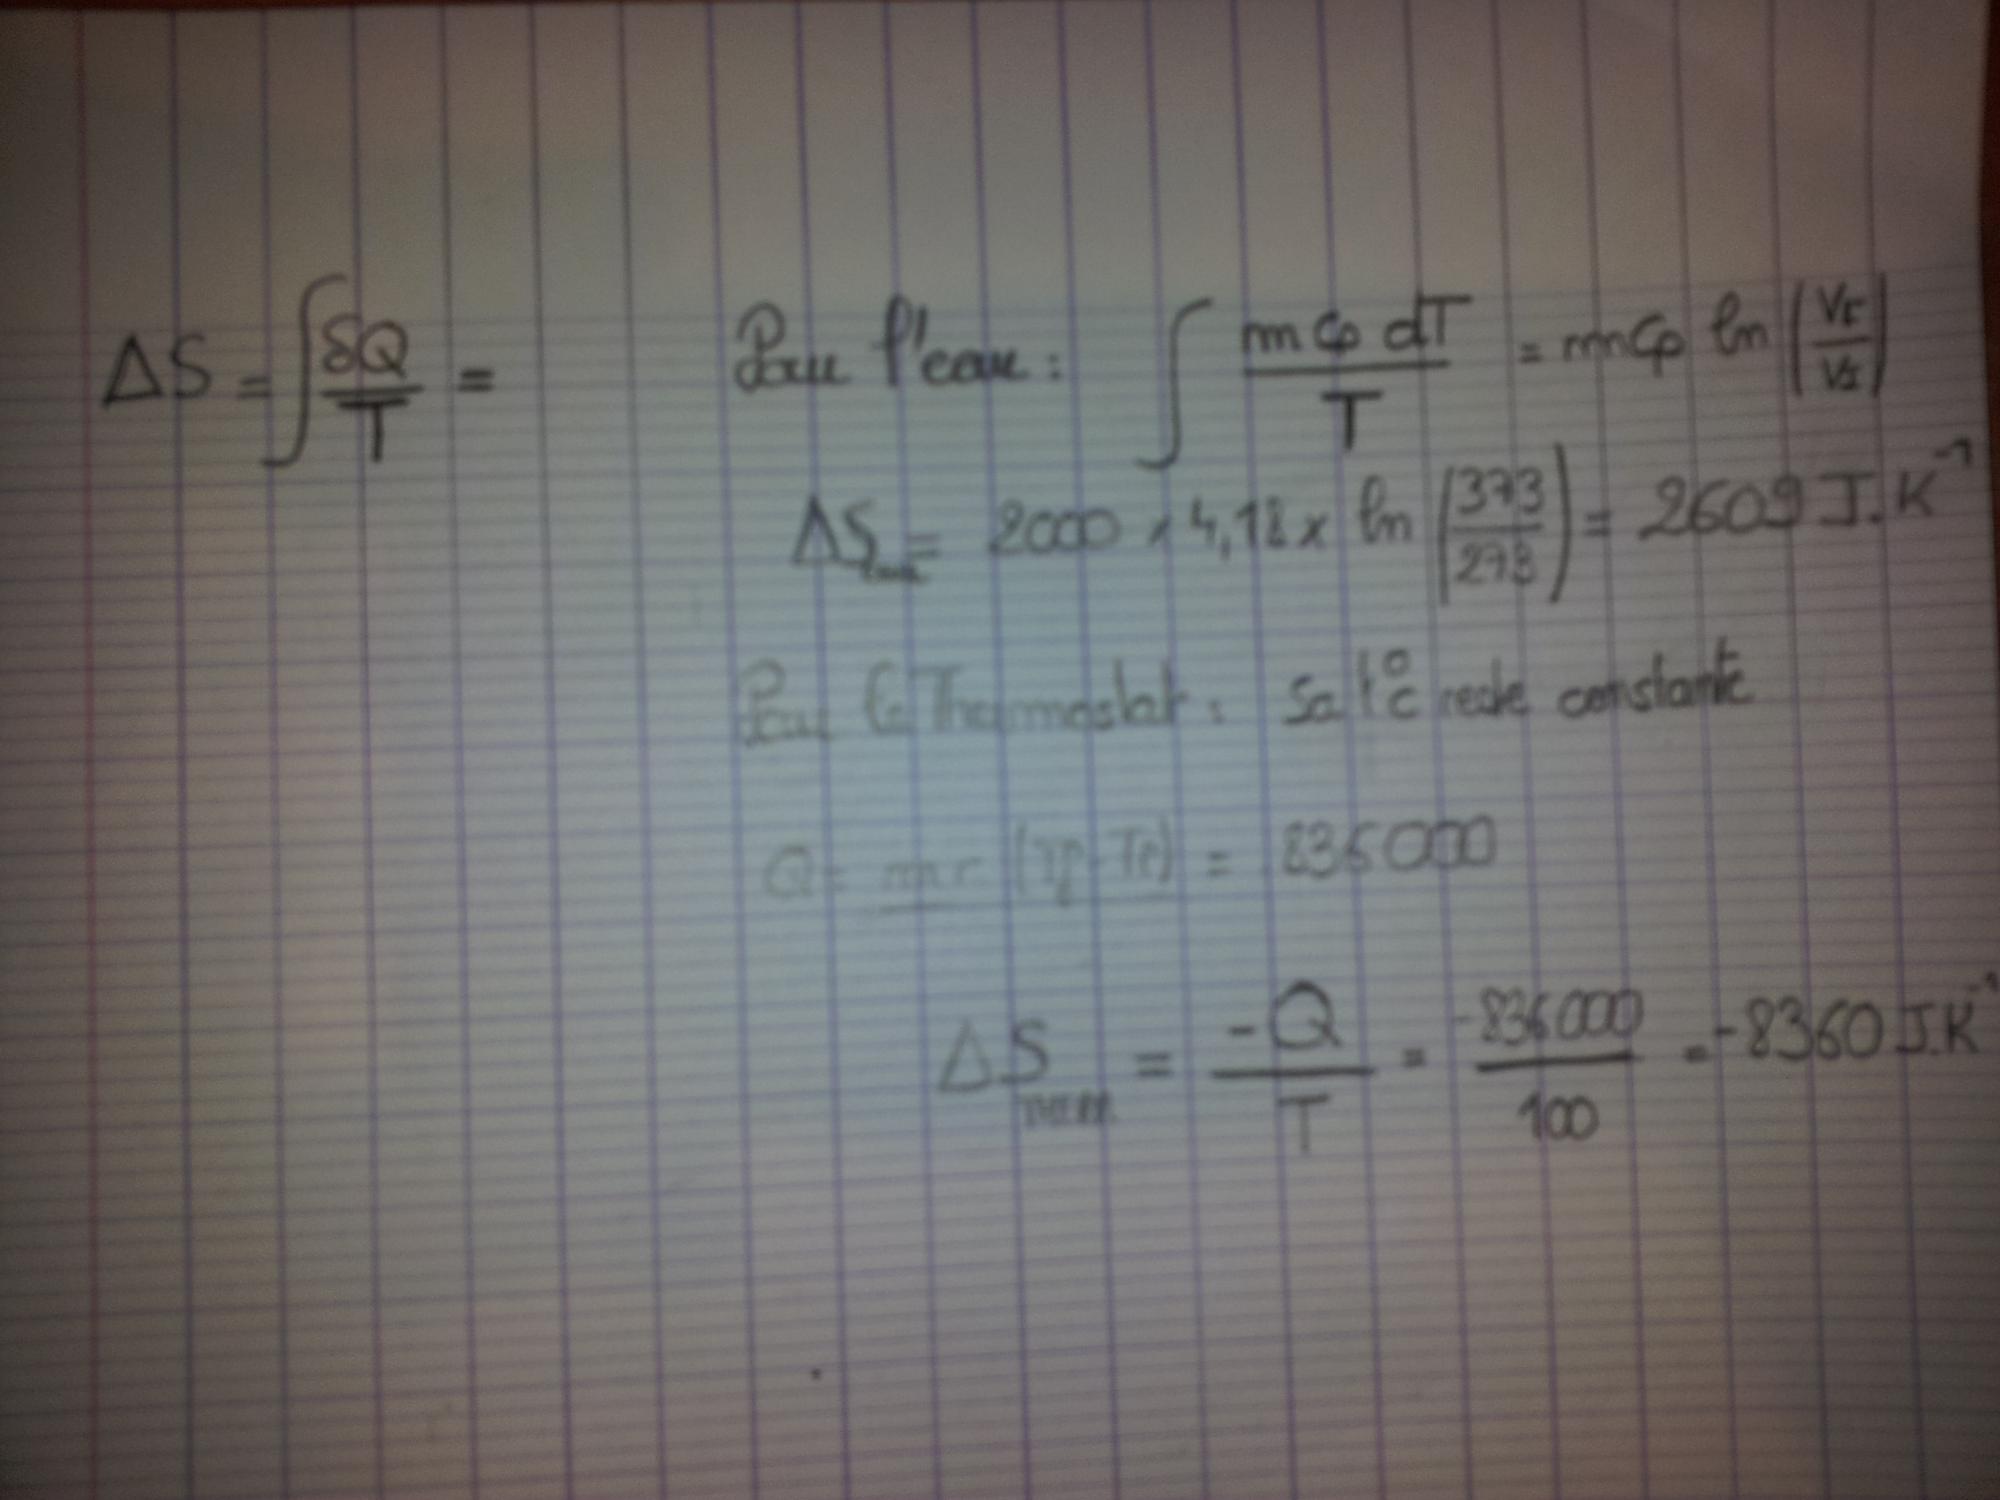 ΔS = ∫ δQ/T =
Pour l'eau : ∫ m Cp dT / T = m Cp ln (Vf/VI)
ΔS eau = 2000 × 4,18 × ln (373/273) = 2609 J.K⁻¹
Pour le Thermostat : Sa t°c reste constante
Q = m c (Tf - Ti) = 836000
ΔS = -Q/T = -836000/100 = -8360 J.K⁻¹